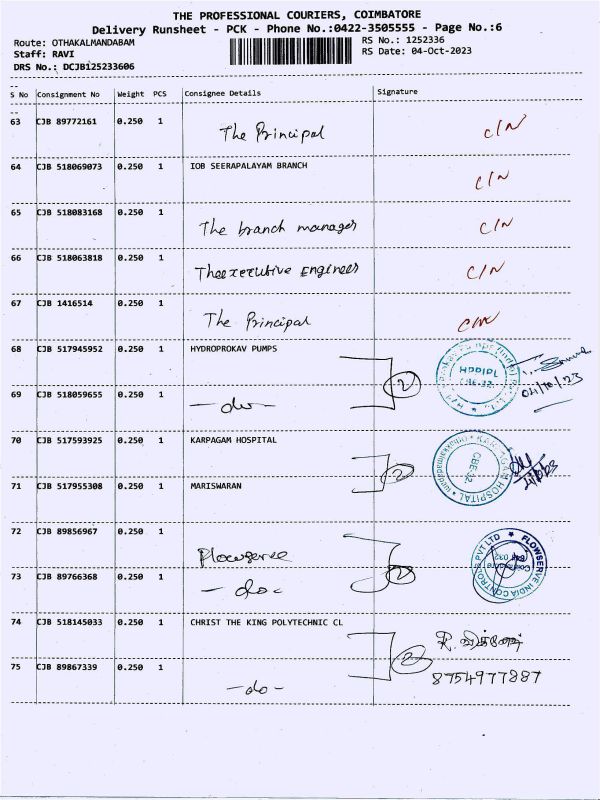 THE PROFESSIONAL COURIERS, COIMBATORE
Delivery Runsheet - PCK - Phone No.:0422-3505555 - Page No.:6
Route: OTHAKALMANDABAM
RS No.: 1252336
Staff: RAVI
RS Date: 04-Oct-2023
DRS No.: DCJB125233606
S No Consignment No Weight PCS Consignee Details Signature
63 CJB 89772161 0.250 1 The Principal C/N
64 CJB 518069073 0.250 1 IOB SEERAPALAYAM BRANCH C/N
65 CJB 518083168 0.250 1 The branch manager C/N
66 CJB 518063818 0.250 1 The executive Engineer C/N
67 CJB 1416514 0.250 1 The Principal
68 CJB 517945952 0.250 1 HYDROPROKAV PUMPS 2 HPPIPL CBE-32 04/10/23
69 CJB 518059655 0.250 1 - do -
70 CJB 517593925 0.250 1 KARPAGAM HOSPITAL 2 KARPAGAM HOSPITAL CBE-32
71 CJB 517955308 0.250 1 MARISWARAN
72 CJB 89856967 0.250 1 Flowserve 2 FLOWSERVE INDIA CONTROLS PVT LTD
73 CJB 89766368 0.250 1 - do -
74 CJB 518145033 0.250 1 CHRIST THE KING POLYTECHNIC CL 2
75 CJB 89867339 0.250 1 - do - 8754977887